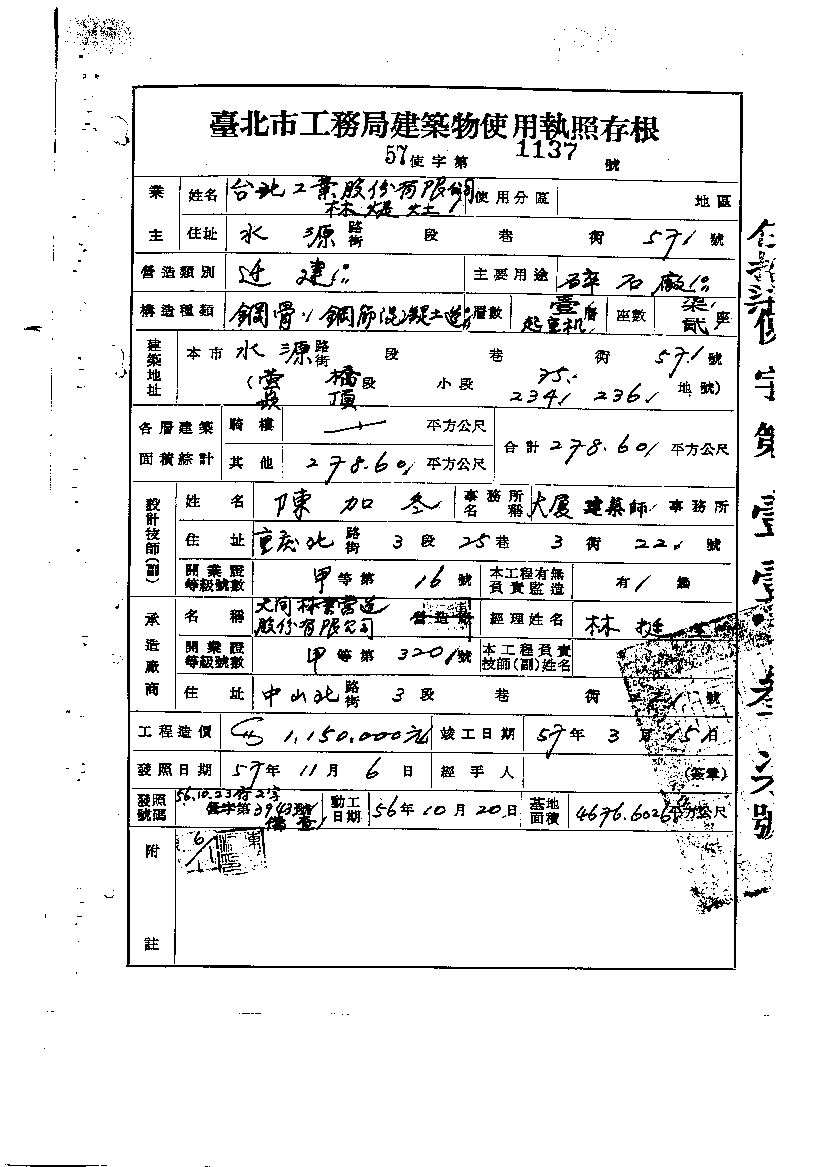 臺北市工務局建築物使用執照存根
57使字第 1137 號
業主 姓名 台北工業股份有限公司 林 使用分區 地區
住址 水源 路街 段 巷 街 571 號
營造類別 建 主要用途 碎石廠
構造種類 鋼骨 鋼筋混凝土造 層數 壹層 起重机 座數 柒 貳 座
建築地址 本市 水源 路街 段 巷 街 571 號
(螢橋 段 小段 75. 2341 2361 地號)
崁頂
各層建築面積綜計 騎樓 平方公尺 合計 278.60 平方公尺
其他 278.60 平方公尺
設計技師(副) 姓名 陳加冬 事務所名稱 大展建築師 事務所
住址 重慶北 路街 3 段 25 巷 3 街 22 號
開業證等級號數 甲等第 16 號 本工程有無負責監造 有 無
承造廠商 名稱 大同林業營造股份有限公司 營造廠 經理姓名 林挺
開業證等級號數 甲等第 320 號 本工程負責技師(副)姓名
住址 中山北 路街 3 段 巷 街 號
工程造價 1,150,000元 竣工日期 57年 3月 15日
發照日期 57年 11月 6日 經手人 (簽章)
發照號碼 56.10.23 字第3943號 動工日期 56年 10月 20日 基地面積 4676.6026 平方公尺
附註
6/1
字第壹壹 號